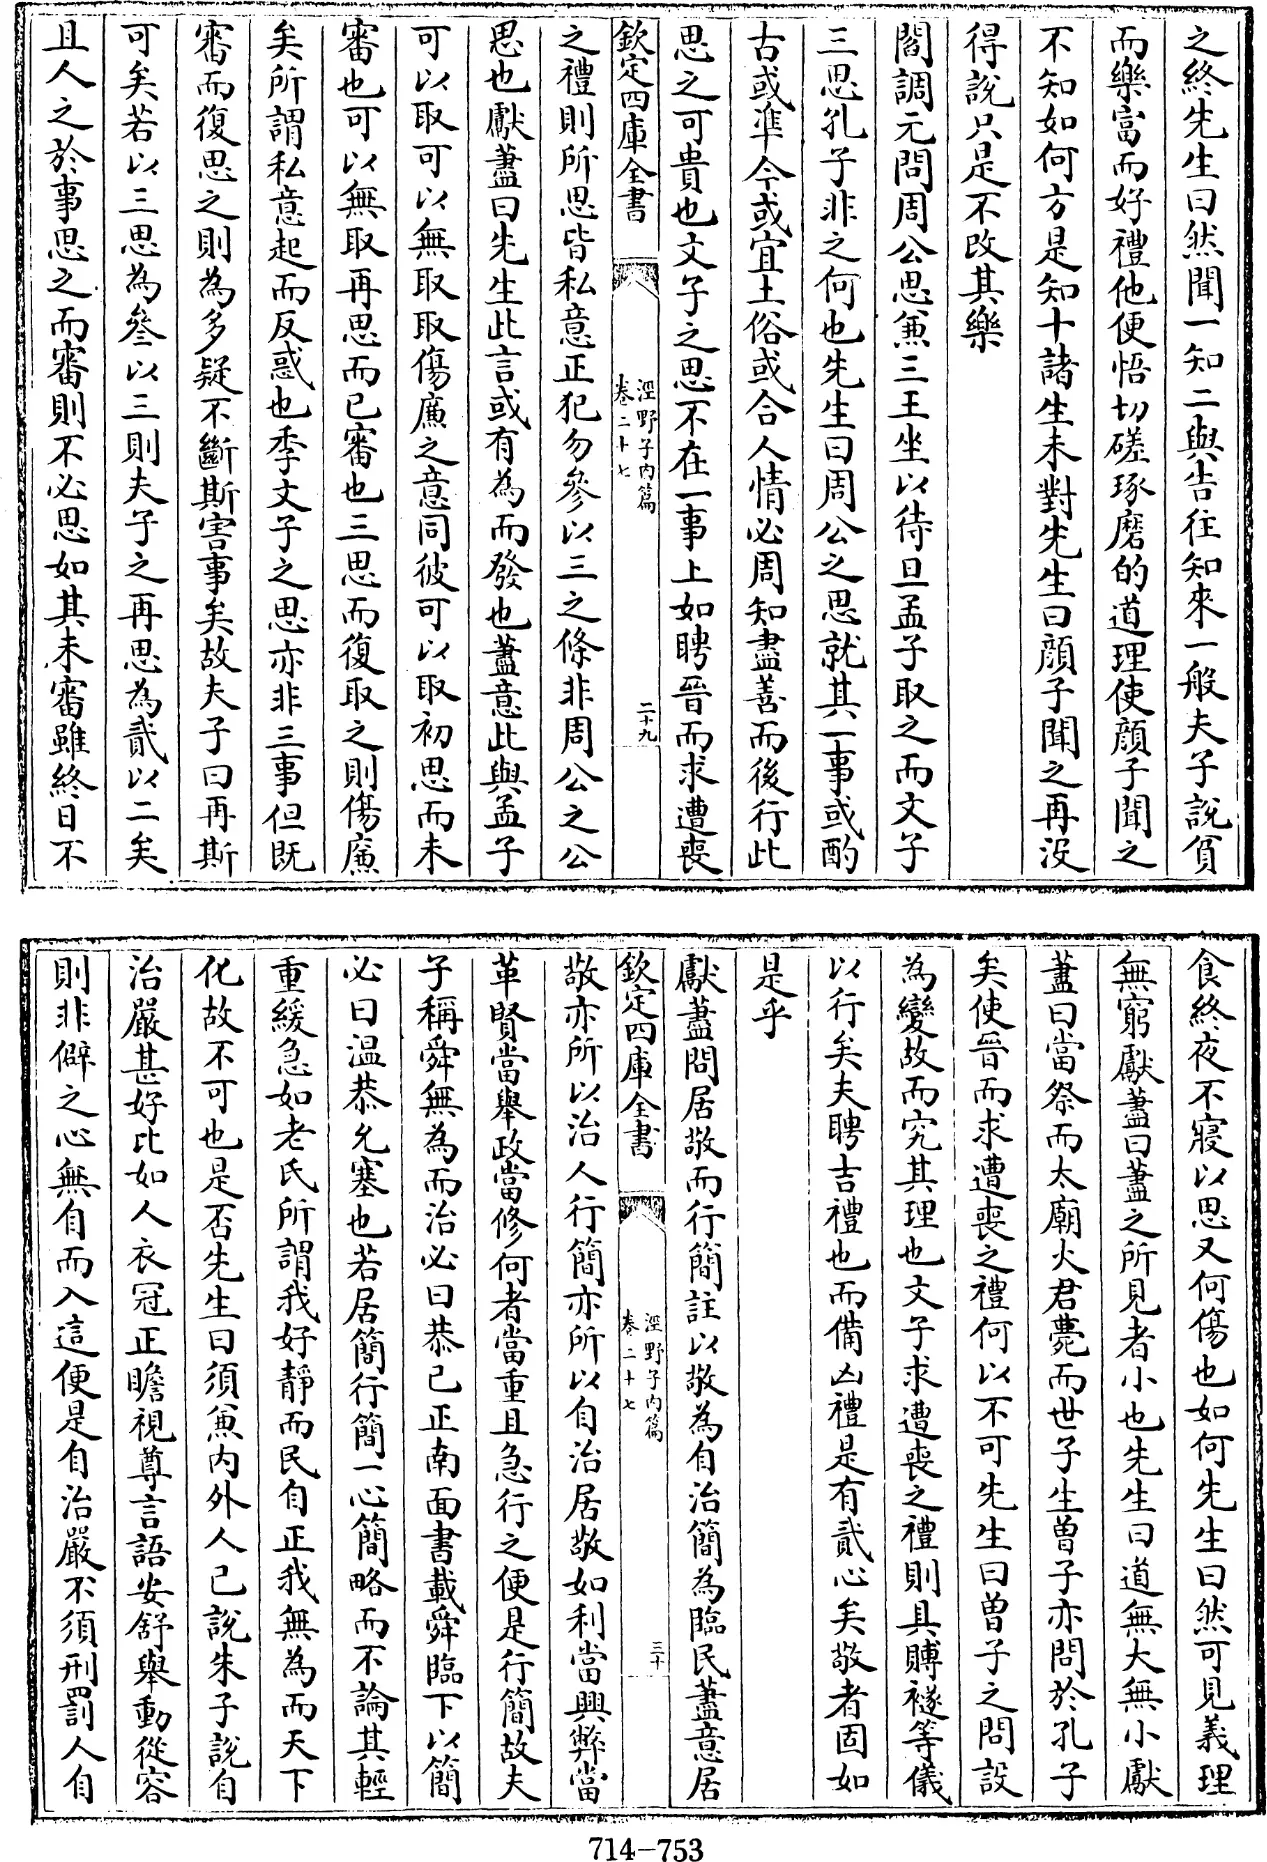 之終先生曰然聞一知二與告往知來一般夫子說貧
而樂富而好禮他便悟切磋琢磨的道理使顔子聞之
不知如何方是知十諸生未對先生曰顔子聞之再没
得說只是不改其樂
閻調元問周公思兼三王坐以待旦孟子取之而文子
三思孔子非之何也先生曰周公之思就其一事或酌
古或準今或宜土俗或合人情必周知盡善而後行此
思之可貴也文子之思不在一事上如聘晉而求遭喪
欽定四庫全書
涇野子内篇
卷二十七
二十九
之禮則所思皆私意正犯勿參以三之條非周公之公
思也獻藎曰先生此言或有為而發也藎意此與孟子
可以取可以無取取傷廉之意同彼可以取初思而未
審也可以無取再思而已審也三思而復取之則傷廉
矣所謂私意起而反惑也季文子之思亦非三事但既
審而復思之則為多疑不斷斯害事矣故夫子曰再斯
可矣若以三思為參以三則夫子之再思為貳以二矣
且人之於事思之而審則不必思如其未審雖終日不
食終夜不寢以思又何傷也如何先生曰然可見義理
無窮獻藎曰藎之所見者小也先生曰道無大無小獻
藎曰當祭而太廟火君薨而世子生曽子亦問於孔子
矣使晉而求遭喪之禮何以不可先生曰曽子之問設
為變故而究其理也文子求遭喪之禮則具賻襚等儀
以行矣夫聘吉禮也而備凶禮是有貳心矣敬者固如
是乎
獻藎問居敬而行簡註以敬為自治簡為臨民藎意居
欽定四庫全書
涇野子内篇
卷二十七
三十
敬亦所以治人行簡亦所以自治居敬如利當興弊當
革賢當舉政當修何者當重且急行之便是行簡故夫
子稱舜無為而治必曰恭已正南面書載舜臨下以簡
必曰温恭允塞也若居簡行簡一心簡略而不論其輕
重緩急如老氏所謂我好靜而民自正我無為而天下
化故不可也是否先生曰須兼内外人已說朱子說自
治嚴甚好比如人衣冠正瞻視尊言語安舒舉動從容
則非僻之心無自而入這便是自治嚴不須刑罰人自
714-753